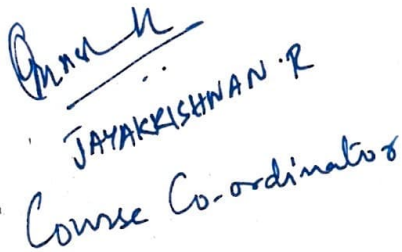 JAYAKKISHNAN.R
Course Co-ordinator